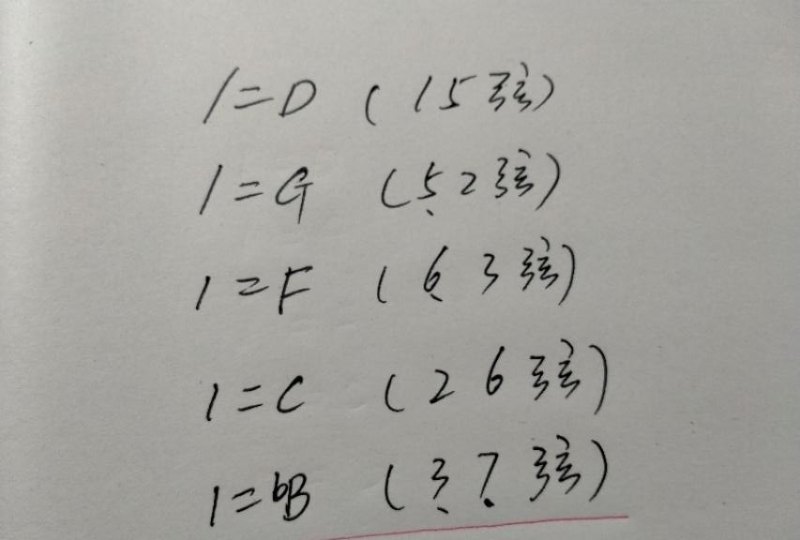 1=D (15弦)
1=G (5̣2弦)
1=F (6̣3弦)
1=C (26弦)
1=bB (3̣7̣弦)